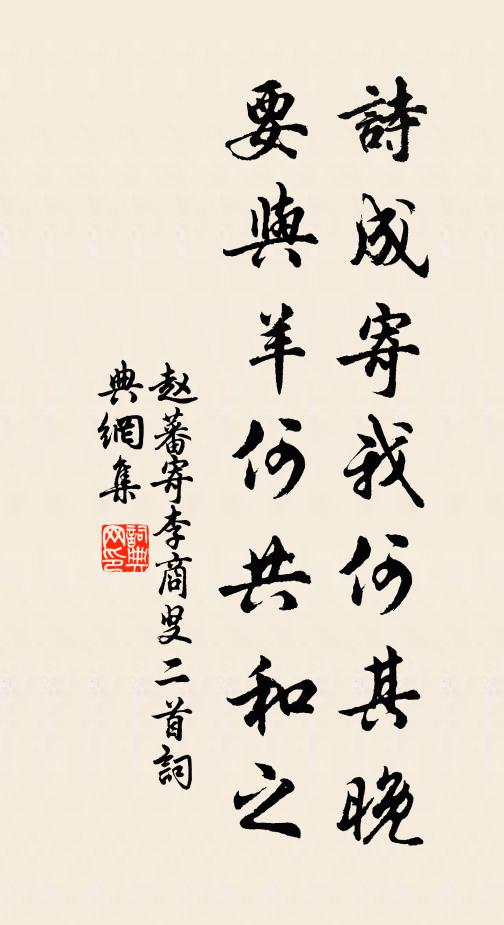 詩成寄我何其晚
要與羊何共和之
赵蕃寄李商叟二首詞
典網集
詞典
网印